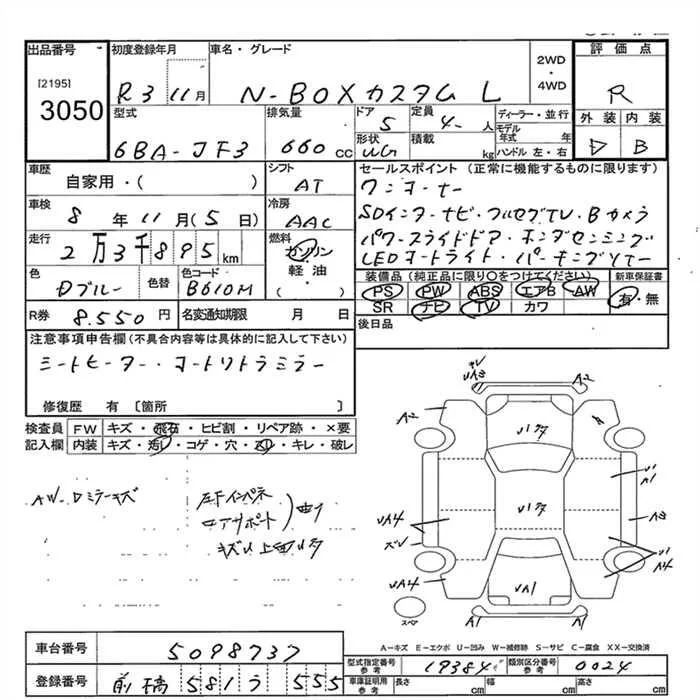 出品番号 初度登録年月 車名・グレード 2WD・4WD 評価点
[2195]
3050 R3 11月 N-BOXカスタム L R
型式 排気量 ドア 5 定員 4 人 ディーラー・並行 外装 内装
6BA-JF3 660 cc 形状 積載 kg モデル年式 年 ハンドル 左・右 D B
車歴 シフト セールスポイント (正常に機能するものに限ります)
自家用・( ) AT ワンオーナー
車検 冷房 SDインターナビ・フルセグTV・Bカメラ
8 年 11 月 ( 5 日) AAC
走行 燃料 パワースライドドア・ホンダセンシング
2万3千895 km ガソリン LEDオートライト・パーキングソナー
色 色替 色コード 軽油 装備品(純正品に限り○をつけてください) 新車保証書
Dブルー B610M ( ) PS PW ABS エアB AW 有・無
SR ナビ TV カワ
R券 8.550 円 名変通知期限 月 日 後日品
注意事項申告欄(不具合内容等は具体的に記入して下さい)
シートヒーター・オートリトラミラー
修復歴 有 〔箇所 〕
検査員 FW キズ・飛石・ヒビ割・リペア跡・×要
記入欄 内装 キズ・汚レ・コゲ・穴・スリ・キレ・破レ
AW・Dミラーキズ
左Fインパネ
コアサポート 曲り
キズ
A2 A2
UA4
UA4
UA1
A1 A1
スペア
A-キズ E-エクボ U-凹み W-補修跡 S-サビ C-腐食 XX-交換済
車台番号 5098737
型式指定番号 参考 19384 類別区分番号 参考 0024
登録番号 前橋 581 う 555
車庫証明用 参考 長さ cm 幅 cm 高さ cm